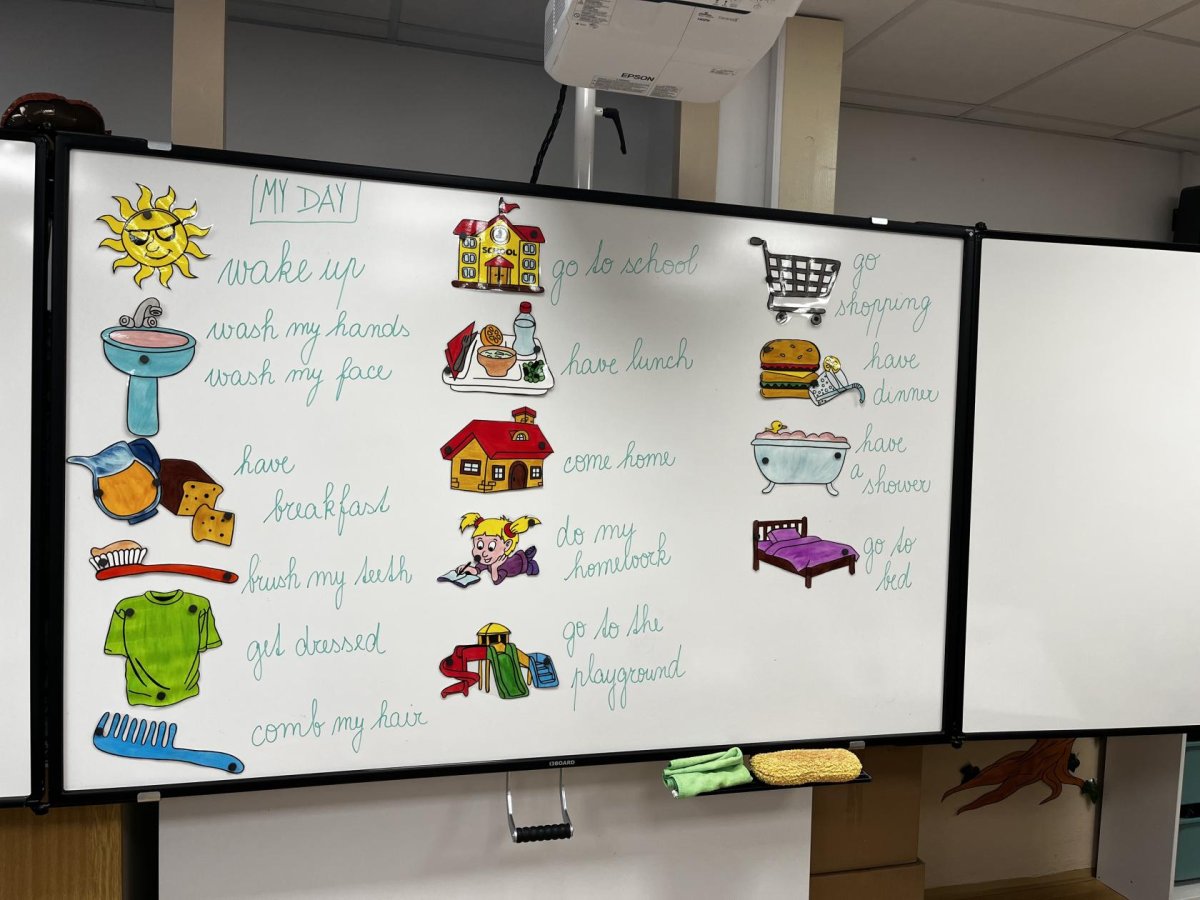 EPSON
MY DAY
wake up
wash my hands
wash my face
have
breakfast
brush my teeth
get dressed
comb my hair
SCHOOL
go to school
have lunch
come home
do my
homework
go to the
playground
go
shopping
have
dinner
have
a
shower
go to
bed